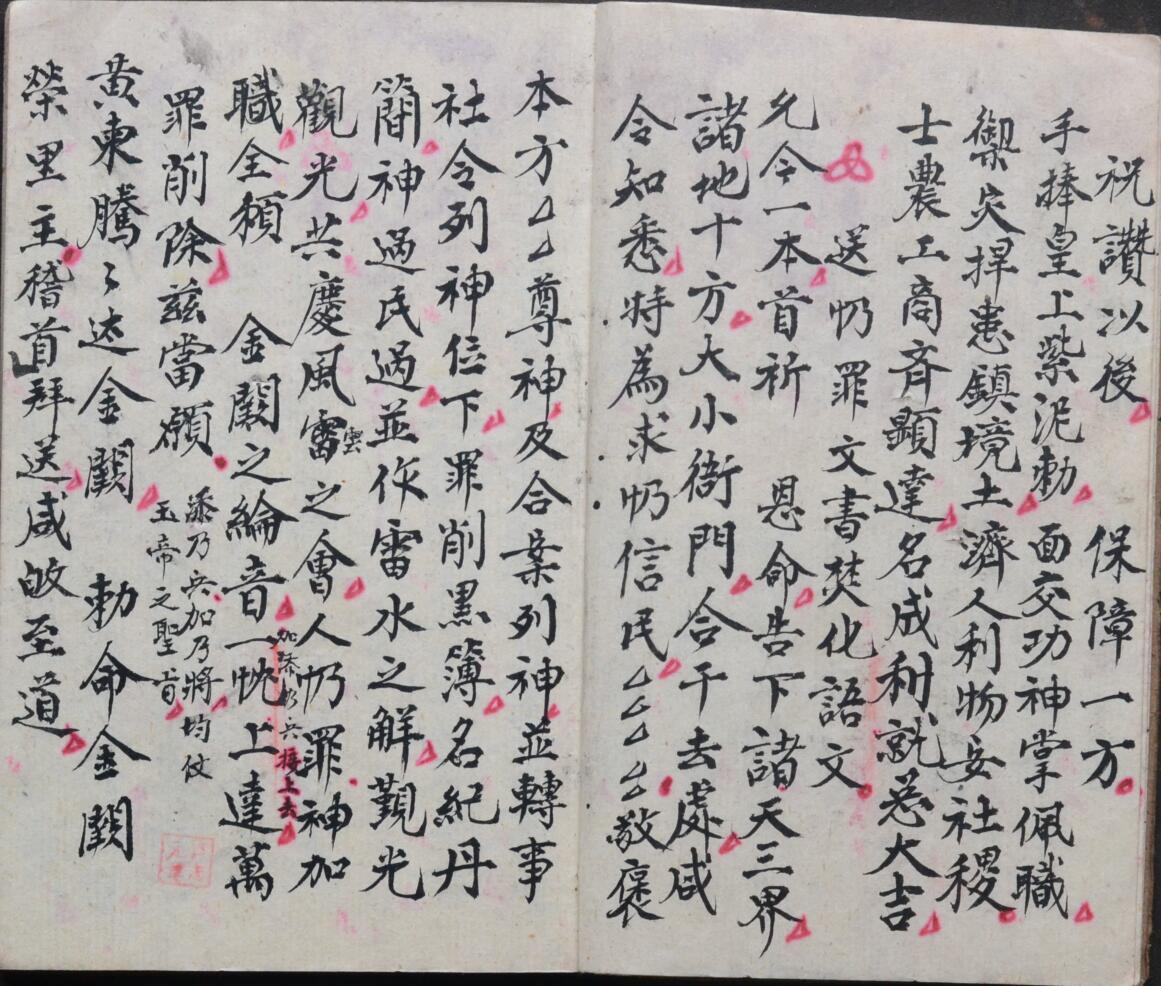 祝讚以後 保障一方
手捧皇上紫泥勅 面交功神掌佩職
禦灾捍患鎮境土 濟人利物安社稷
士農工商斉顯達 名成利就忩大吉
送 㤆罪文書焚化語文
允令一本首祈 恩命告下諸天三界
諸地十方大小衙門合干去處咸
令知悉特為求㤆信民厶厶厶厶敬褒
本方厶厶尊神及合案列神並轉事
社令列神位下罪削黒簿名紀丹
簡神過民過並作雷水之解觀光
觀光共慶風雷雲之會人㤆罪神加
職全頼 金闕之綸音一忱上達萬
加添好兵接上去
罪削除兹當願
添乃兵加乃將均仗
玉帝之聖旨
黄東騰〻达金闕 勅命金闕
榮里主稽首拜送咸皈至道